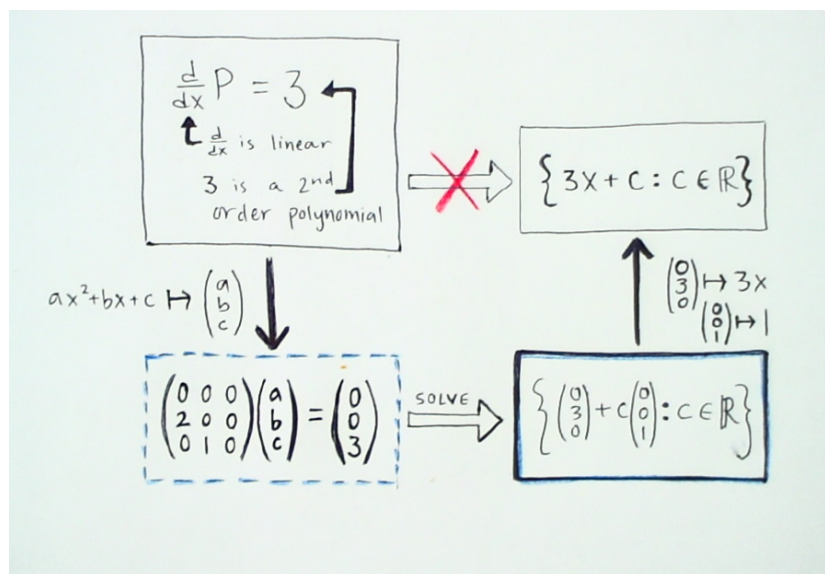 d/dx P = 3
d/dx is linear
3 is a 2nd
order polynomial
{3x + c : c ∈ ℝ}
ax²+bx+c ↦ (a b c)
(0 3 0) ↦ 3x
(0 0 1) ↦ 1
(0 0 0; 2 0 0; 0 1 0)(a b c) = (0 0 3)
SOLVE
{(0 3 0) + c(0 0 1) : c ∈ ℝ}